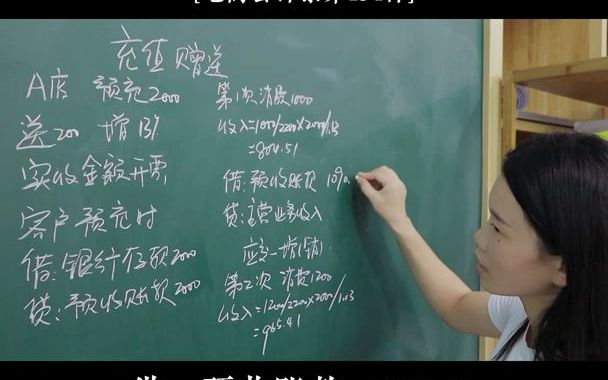 充值赠送
A店 预充2000
送200 增13%
实收金额开票
客户预充时
借:银行存款2000
贷:预收账款2000
第1次消费1000
收入=1000/2200×2000/1.13
=804.51
借:预收账款 1090.
贷:主营业务收入
应交一增(销)
第2次 消费1200
收入=1200/2200×2000/1.13
=965.41